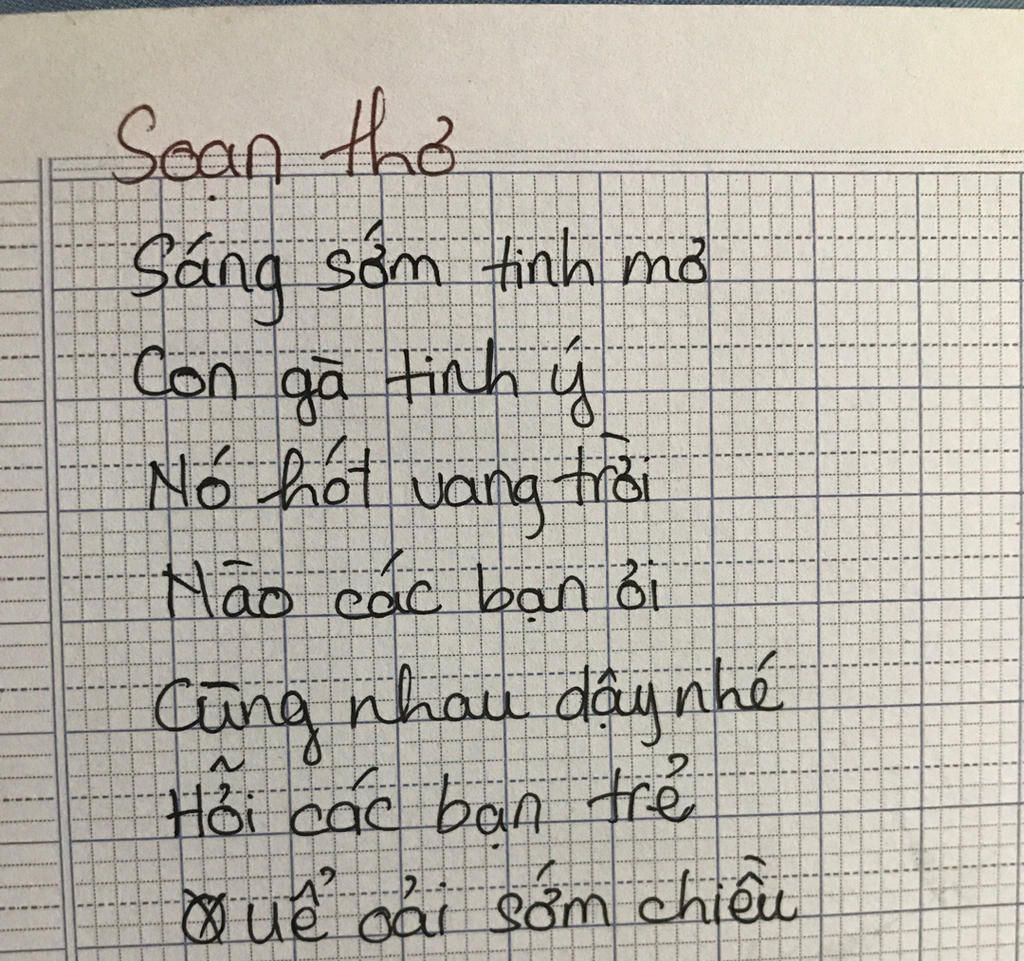 Soạn thơ
Sáng sớm tinh mơ
Con gà tinh ý
Nó hót vang trời
Nào các bạn ơi
Cùng nhau dậy nhé
Hỡi các bạn trẻ
Quể oải sớm chiều